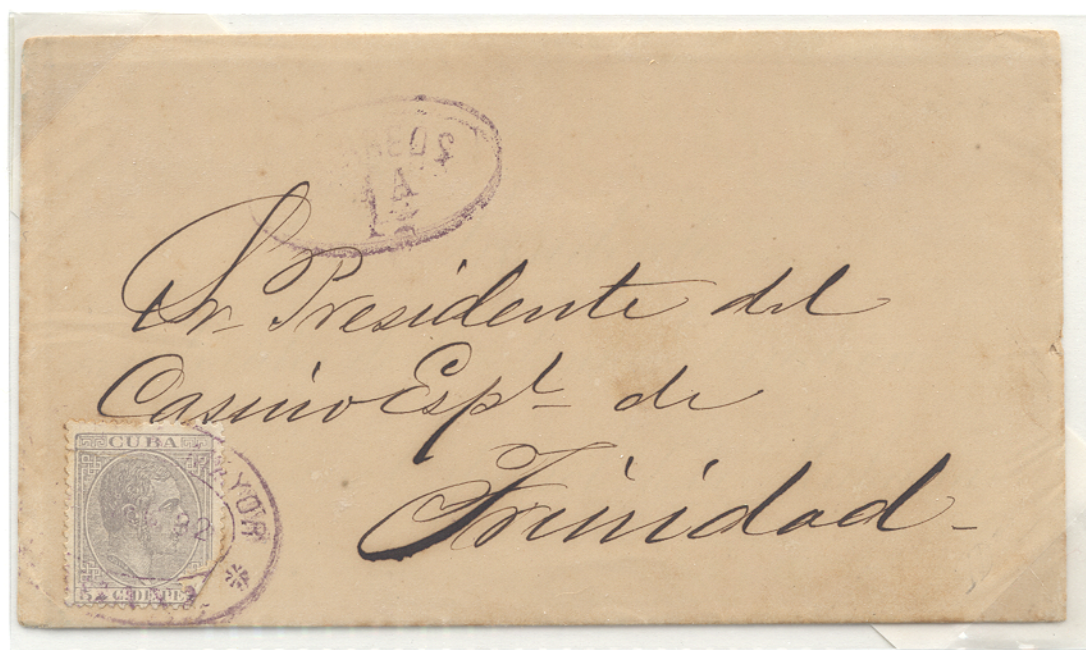 1ª
Sr. Presidente del
Casino Espl. de
Trinidad
CUBA
AYOR
82
5 C DE PE